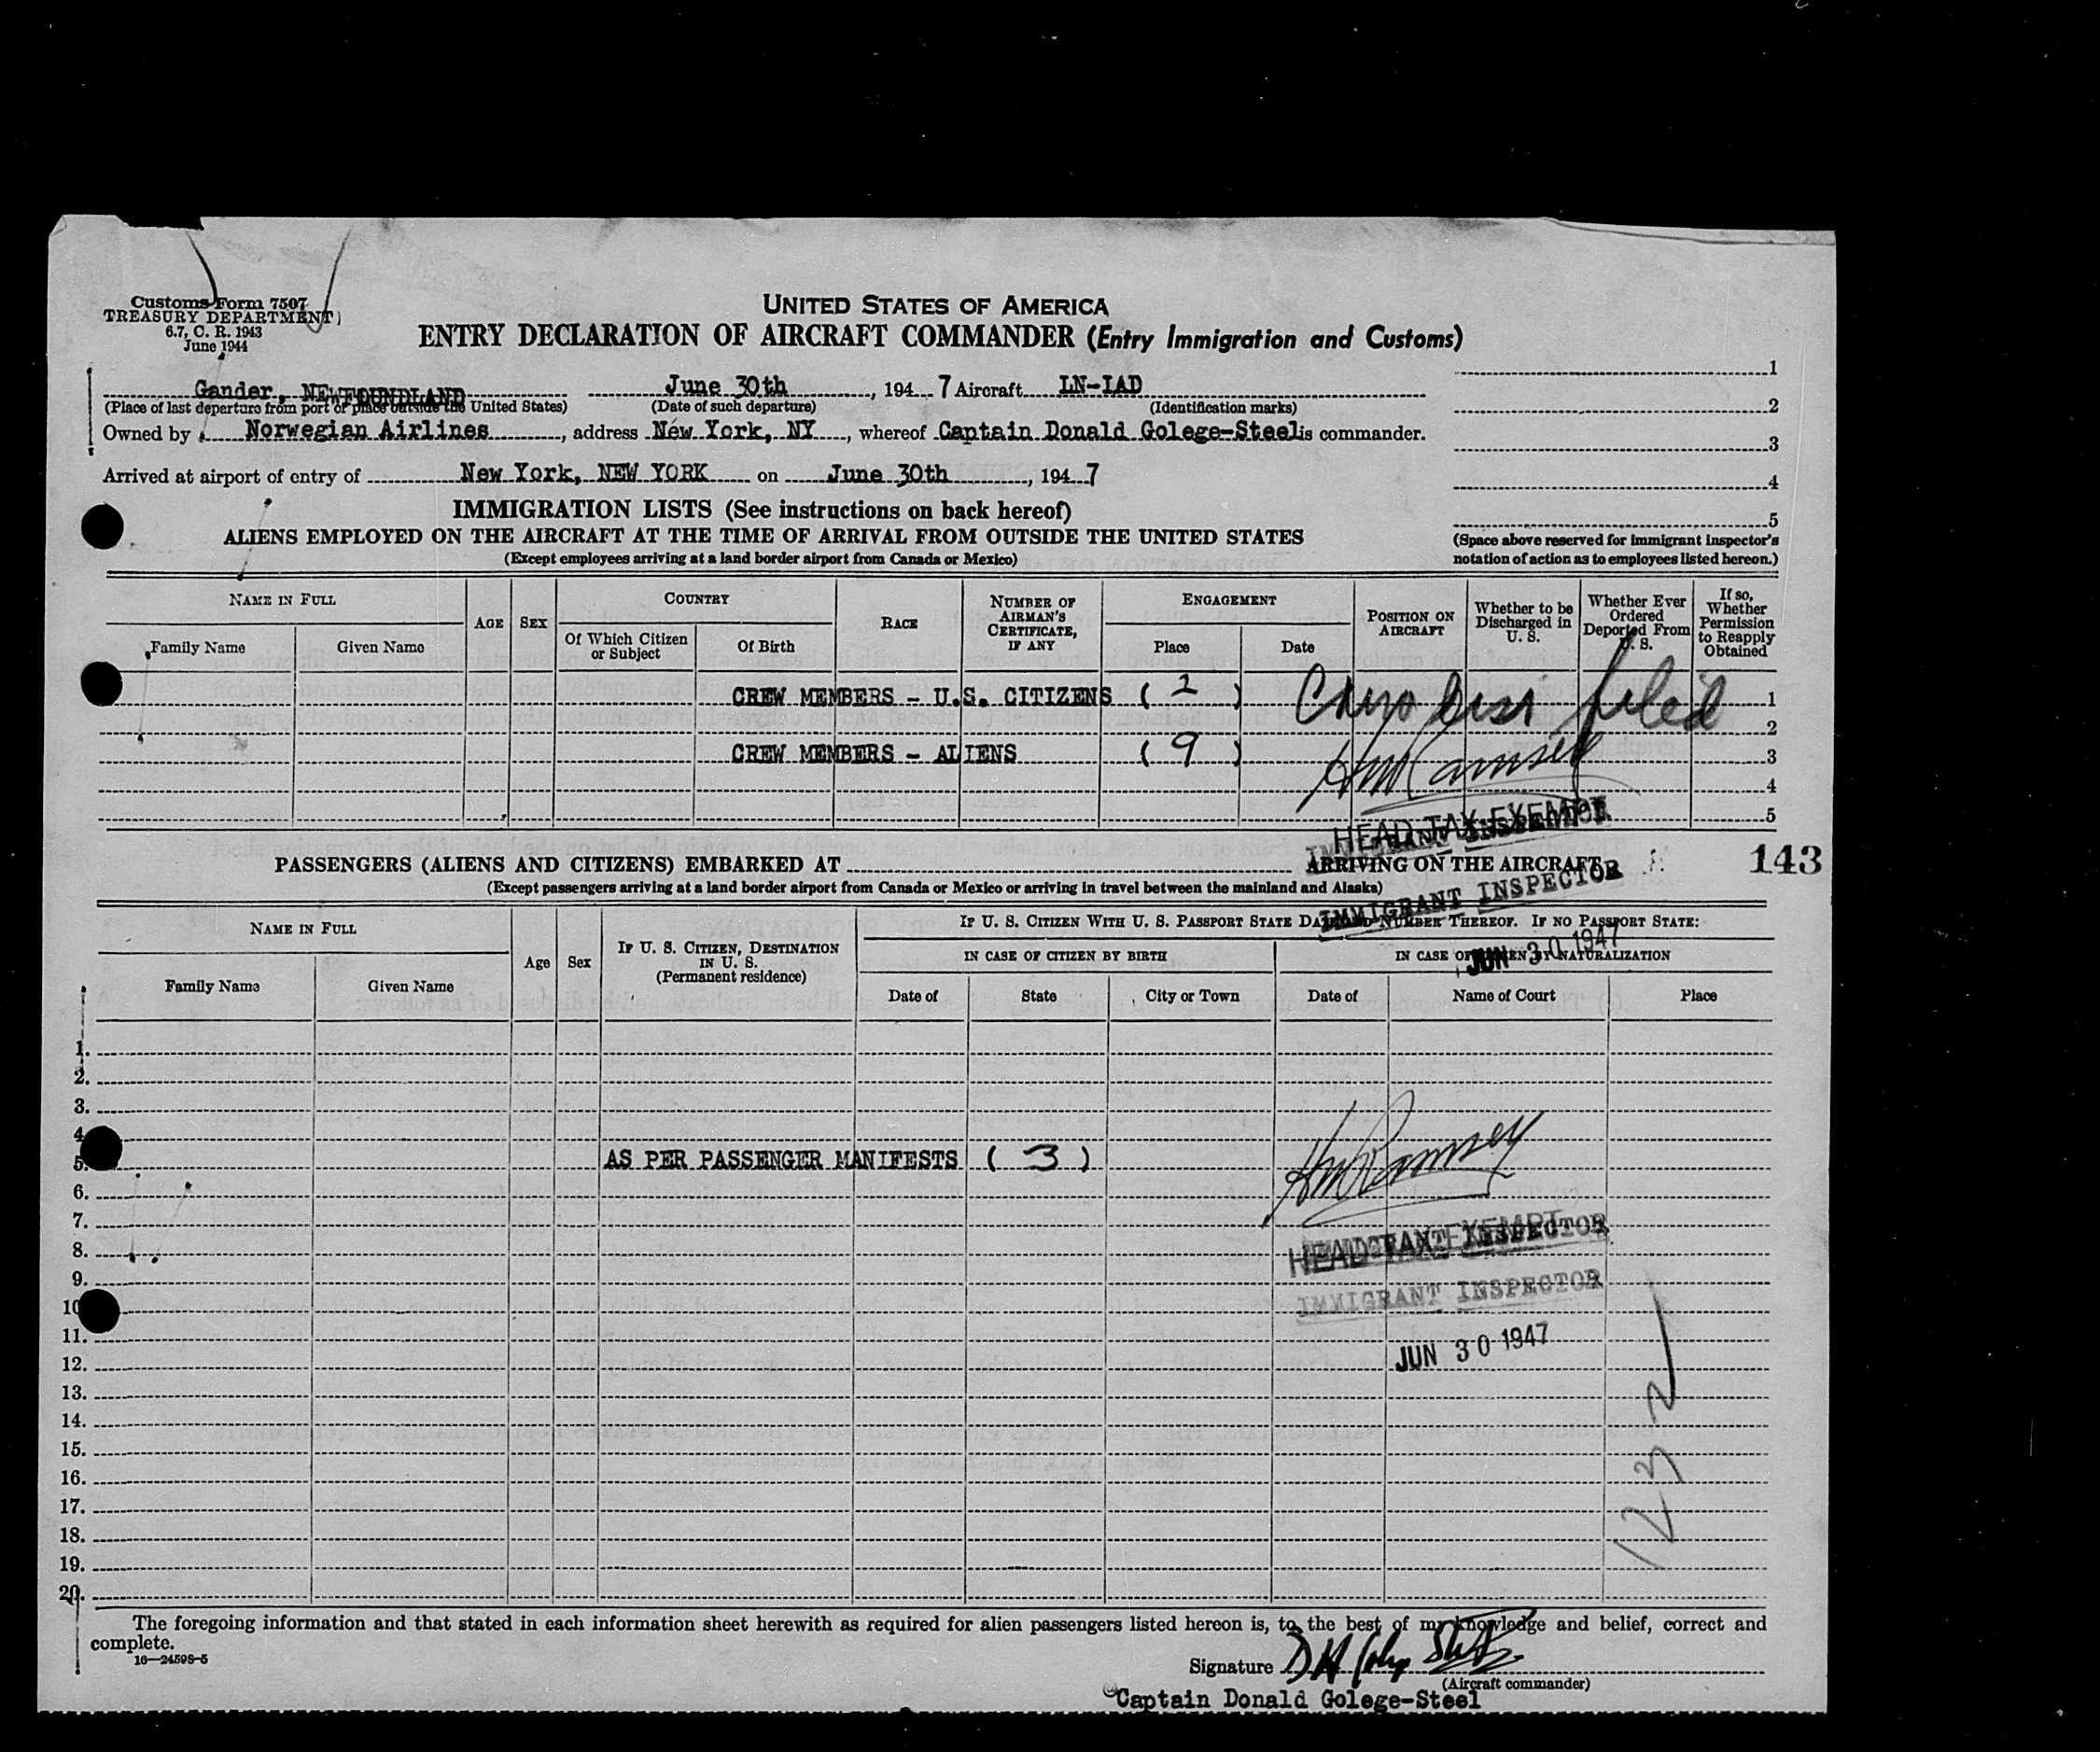 Customs Form 7507
TREASURY DEPARTMENT
6.7, C. R. 1943
June 1944
UNITED STATES OF AMERICA
ENTRY DECLARATION OF AIRCRAFT COMMANDER (Entry Immigration and Customs)
Gander, NEWFOUNDLAND June 30th, 194 7 Aircraft LN-IAD
(Place of last departure from port or place outside the United States) (Date of such departure) (Identification marks)
Owned by Norwegian Airlines, address New York, NY, whereof Captain Donald Golege-Steel is commander.
Arrived at airport of entry of New York, NEW YORK on June 30th, 194 7
1
2
3
4
5
(Space above reserved for immigrant inspector's
notation of action as to employees listed hereon.)
IMMIGRATION LISTS (See instructions on back hereof)
ALIENS EMPLOYED ON THE AIRCRAFT AT THE TIME OF ARRIVAL FROM OUTSIDE THE UNITED STATES
(Except employees arriving at a land border airport from Canada or Mexico)
NAME IN FULL
Family Name
Given Name
AGE
SEX
COUNTRY
Of Which Citizen
or Subject
Of Birth
RACE
NUMBER OF
AIRMAN'S
CERTIFICATE,
IF ANY
ENGAGEMENT
Place
Date
POSITION ON
AIRCRAFT
Whether to be
Discharged in
U. S.
Whether Ever
Ordered
Deported From
U. S.
If so,
Whether
Permission
to Reapply
Obtained
CREW MEMBERS - U.S. CITIZENS ( ) filed 1
2
CREW MEMBERS - ALIENS ( 9 ) 3
4
5
HEAD TAX EXEMPT
IMMIGRANT INSPECTOR
PASSENGERS (ALIENS AND CITIZENS) EMBARKED AT ARRIVING ON THE AIRCRAFT
143
(Except passengers arriving at a land border airport from Canada or Mexico or arriving in travel between the mainland and Alaska)
IMMIGRANT INSPECTOR
JUN 30 1947
NAME IN FULL
Family Name
Given Name
Age
Sex
IF U. S. CITIZEN, DESTINATION
IN U. S.
(Permanent residence)
IF U. S. CITIZEN WITH U. S. PASSPORT STATE DATE AND NUMBER THEREOF. IF NO PASSPORT STATE:
IN CASE OF CITIZEN BY BIRTH
Date of
State
City or Town
IN CASE OF CITIZEN BY NATURALIZATION
Date of
Name of Court
Place
1.
2.
3.
4.
5. AS PER PASSENGER MANIFESTS ( 3 )
HM Ramsey
6.
7.
8.
HEAD TAX EXEMPT
IMMIGRANT INSPECTOR
9.
IMMIGRANT INSPECTOR
10
11.
JUN 30 1947
12.
13.
14.
15.
16.
17.
18.
19.
20.
The foregoing information and that stated in each information sheet herewith as required for alien passengers listed hereon is, to the best of my knowledge and belief, correct and
complete.
16—24598-5
Signature
(Aircraft commander)
Captain Donald Golege-Steel